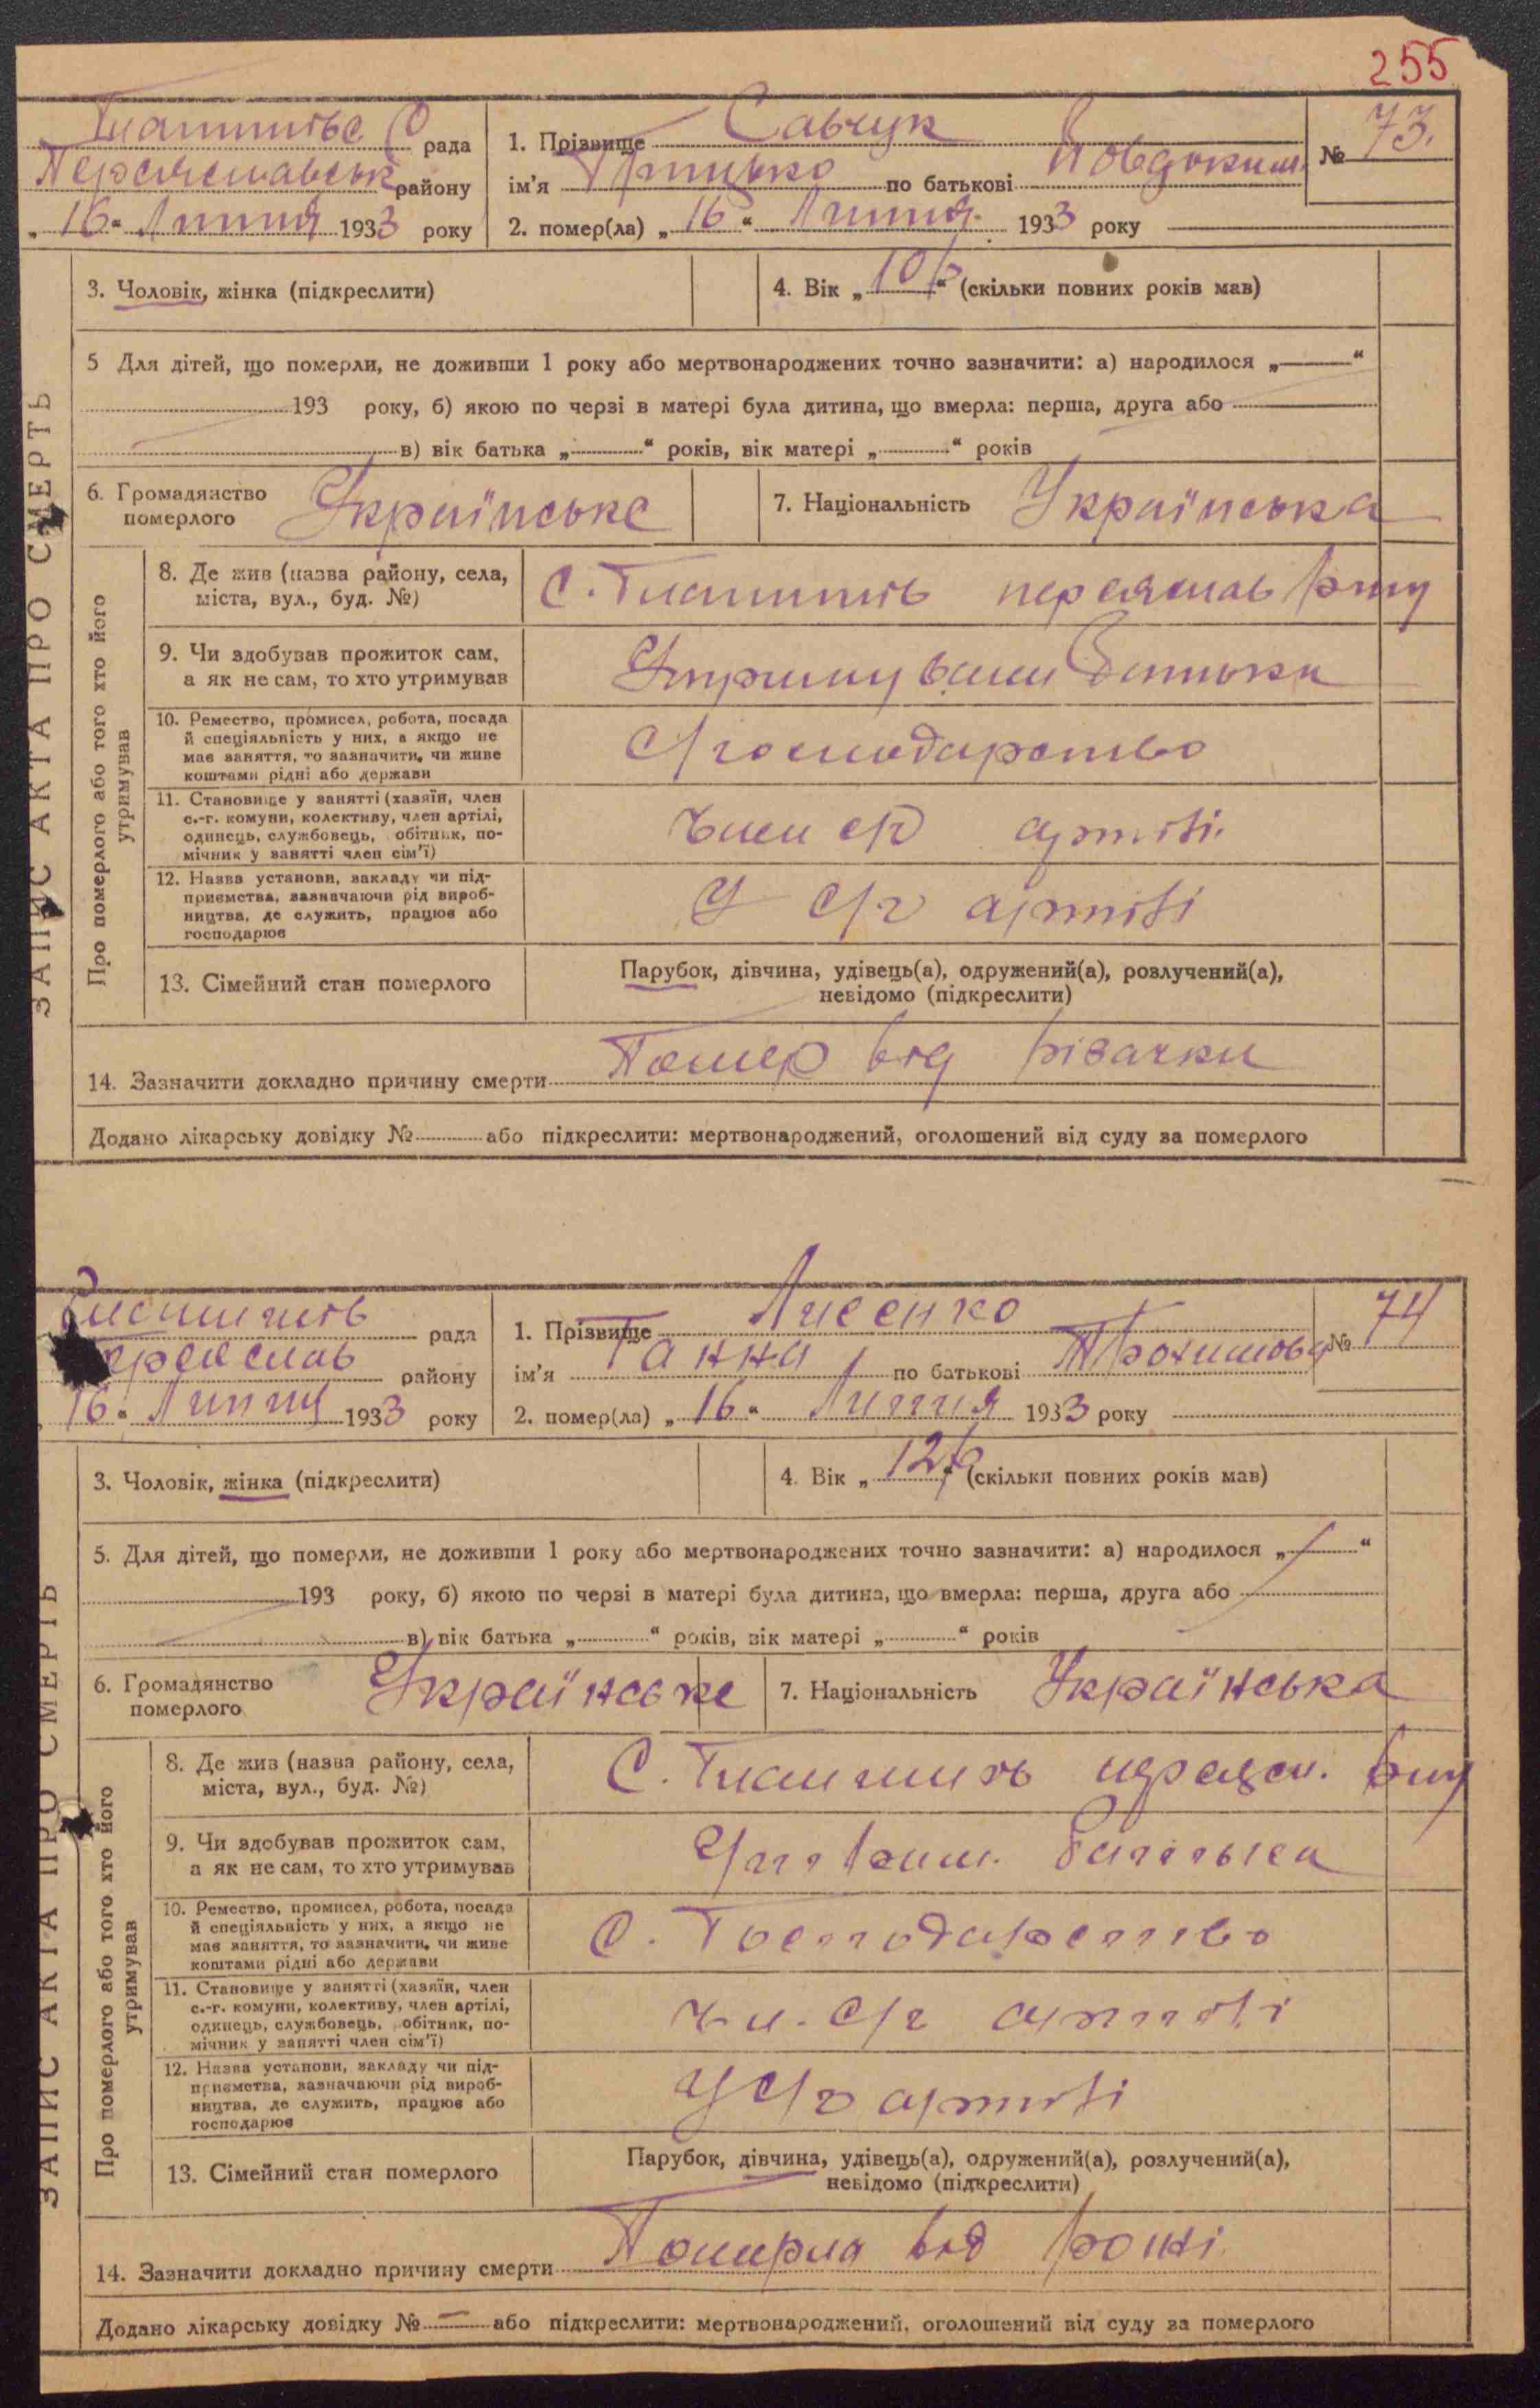 255
рада
Переяславськ району
„16“ Липня 1933 року
1. Прізвище Савчук
ім'я Грицько по батькові Йовдоким.
№ 73.
2. помер(ла) „16“ Липня 1933 року
ЗАПИС АКТА ПРО СМЕРТЬ
3. Чоловік, жінка (підкреслити)
4. Вік „10 р“ (скільки повних років мав)
5 Для дітей, що померли, не доживши 1 року або мертвонароджених точно зазначити: а) народилося „——“
193 року, б) якою по черзі в матері була дитина, що вмерла: перша, друга або
в) вік батька „“ років, вік матері „“ років
6. Громадянство
померлого
Українське
7. Національність Українська
Про померлого або того хто його
утримував
8. Де жив (назва району, села,
міста, вул., буд. №)
9. Чи здобував прожиток сам,
а як не сам, то хто утримував
Утримували Батьки
10. Ремество, промисел, робота, посада
й спеціяльність у них, а якщо не
має заняття, то зазначити, чи живе
коштами рідні або держави
С/господарство
11. Становище у занятті (хазяїн, член
с.-г. комуни, колективу, член артілі,
одинець, службовець, обітник, по-
мічник у занятті член сім'ї)
член с/г артілі.
12. Назва установи, закладу чи під-
приємства, зазначаючи рід вироб-
ництва, де служить, працює або
господарює
У С/г артілі
13. Сімейний стан померлого
Парубок, дівчина, удівець(а), одружений(а), розлучений(а),
невідомо (підкреслити)
14. Зазначити докладно причину смерти Помер від різачки
Додано лікарську довідку № або підкреслити: мертвонароджений, оголошений від суду за померлого
рада
Переяслав району
„16“ Липня 1933 року
1. Прізвище Лисенко
ім'я Ганна по батькові Трохимова
№ 74
2. помер(ла) „16“ Липня 1933 року
ЗАПИС АКТА ПРО СМЕРТЬ
3. Чоловік, жінка (підкреслити)
4. Вік „12 р“ (скільки повних років мав)
5. Для дітей, що померли, не доживши 1 року або мертвонароджених точно зазначити: а) народилося „——“
193 року, б) якою по черзі в матері була дитина, що вмерла: перша, друга або
в) вік батька „“ років, вік матері „“ років
6. Громадянство
померлого
Українське
7. Національність Українська
Про померлого або того хто його
утримував
8. Де жив (назва району, села,
міста, вул., буд. №)
9. Чи здобував прожиток сам,
а як не сам, то хто утримував
батьки
10. Ремество, промисел, робота, посада
й спеціяльність у них, а якщо не
має заняття, то зазначити, чи живе
коштами рідні або держави
С. Господарство
11. Становище у занятті (хазяїн, член
с.-г. комуни, колективу, член артілі,
одинець, службовець, обітник, по-
мічник у занятті член сім'ї)
чл. с/г артілі
12. Назва установи, закладу чи під-
приємства, зазначаючи рід вироб-
ництва, де служить, працює або
господарює
У С/г артілі
13. Сімейний стан померлого
Парубок, дівчина, удівець(а), одружений(а), розлучений(а),
невідомо (підкреслити)
14. Зазначити докладно причину смерти Померла від рожі
Додано лікарську довідку № — або підкреслити: мертвонароджений, оголошений від суду за померлого